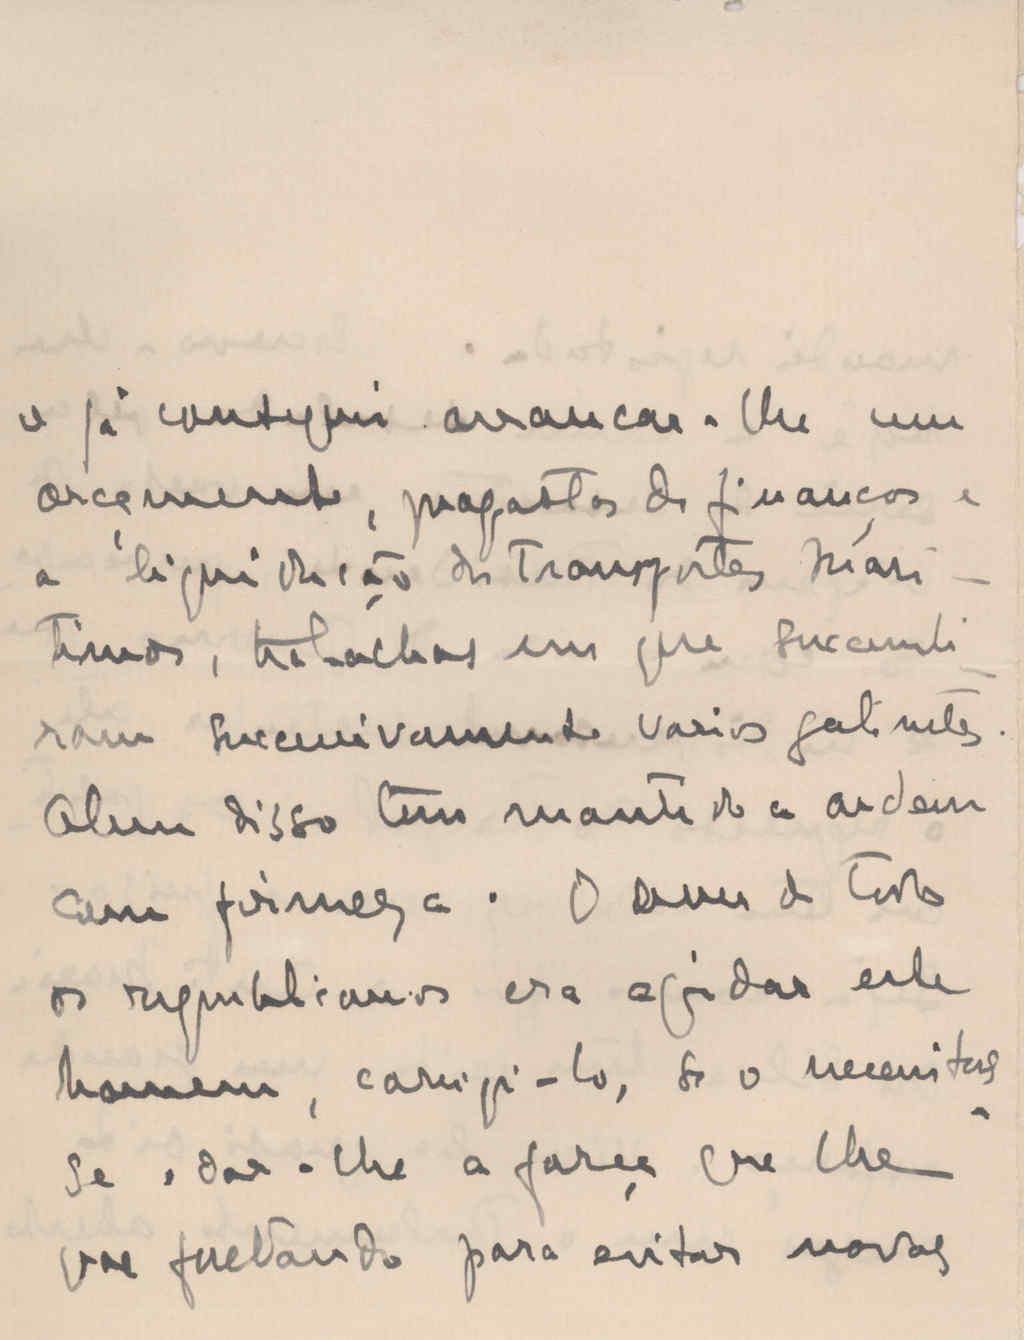 e já consegui arrancar-lhe um
orçamento, propostas de finanças e
a liquidação dos Transportes Mari-
timos, trabalhos em que sucumbi-
ram sucessivamente varios gabinetes.
Alem disso tem mantido a ordem
com firmeza. O dever de todos
os republicanos era ajudar este
homem, corrigi-lo, se o necessitas-
se e dar-lhe a força que lhe
vae faltando para evitar novas